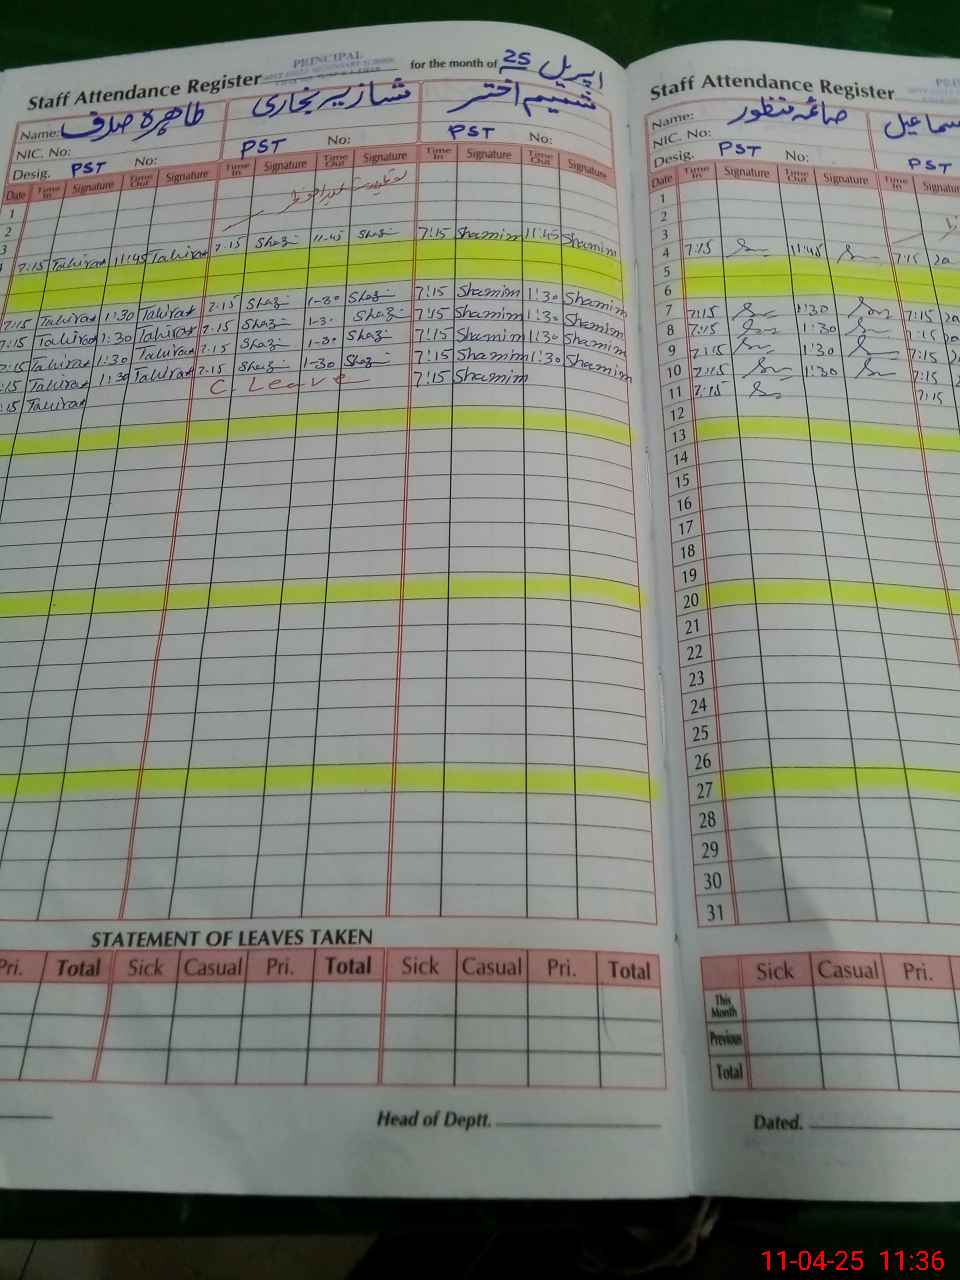 PRINCIPAL
Staff Attendance Register for the month of اپریل 25
Name: طاہرہ صدف شازیہ بخاری شمیم اختر
NIC. No:
Desig. PST No: PST No: PST No:
Date Time In Signature Time Out Signature Time In Signature Time Out Signature Time In Signature Time Out Signature
1
2
3
7:15 Tahira 11:45 Tahira 7:15 Shazi 11:45 Shazi 7:15 Shamim 11:45 Shamim
7:15 Tahira 1:30 Tahira 7:15 Shazi 1-30 Shazi 7:15 Shamim 1:30 Shamim
7:15 Tahira 1:30 Tahira 7:15 Shazi 1-30 Shazi 7:15 Shamim 1:30 Shamim
7:15 Tahira 1:30 Tahira 7:15 Shazi 1-30 Shazi 7:15 Shamim 1:30 Shamim
7:15 Tahira 1:30 Tahira 7:15 Shazi 1-30 Shazi 7:15 Shamim 1:30 Shamim
:15 Tahira C. Leave 7:15 Shamim
STATEMENT OF LEAVES TAKEN
Pri. Total Sick Casual Pri. Total Sick Casual Pri. Total
Head of Deptt.
Staff Attendance Register
Name: صائمہ منظور
NIC. No:
Desig. PST No: PST
Date Time In Signature Time Out Signature Time In
1
2
3
4 7:15 11:45 7:15
5
6
7 7:15 1:30 7:15
8 7:15 1:30 7:15
9 7:15 1:30 7:15
10 7:15 1:30 7:15
11 7:15 7:15
12
13
14
15
16
17
18
19
20
21
22
23
24
25
26
27
28
29
30
31
Sick Casual Pri.
This Month
Previous
Total
Dated.
11-04-25 11:36